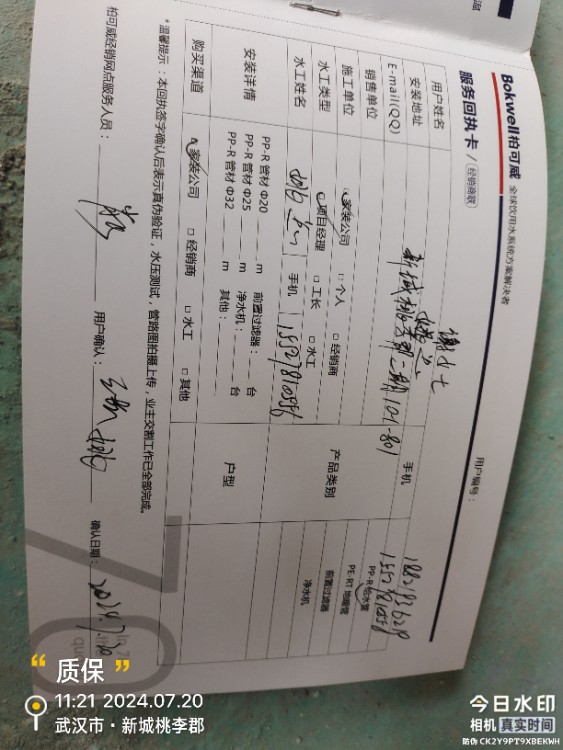 Bokwell柏可威 全球饮用水系统方案解决者
服务回执卡 / 经销商联
用户编号：
用户姓名 谢女士 手机
安装地址 新城桃李郡二期101-801
E-mail(QQ)
销售单位
施工单位 家装公司 □ 个人 □ 经销商
水工类型 项目经理 □ 工长 □ 水工
水工姓名 手机
产品类别 PP-R 给水管
PE-RT 地暖管
前置过滤器
净水机
安装详情 PP-R 管材 Φ20 m 前置过滤器： 台
PP-R 管材 Φ25 m 净水机： 台
PP-R 管材 Φ32 m 其他：
户型
购买渠道 家装公司 □ 经销商 □ 水工 □ 其他
*温馨提示：本回执签字确认后表示真伪验证，水压测试，管路图拍摄上传，业主交割工作已全部完成。
柏可威经销网点服务人员： 用户确认： 确认日期： 2024.7.20
“ 质保 ”
11:21 2024.07.20
武汉市·新城桃李郡
今日水印
相机 真实时间
防伪 CK2Y9PT9XBEKWH